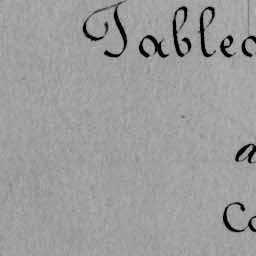 Tablea
a
Co